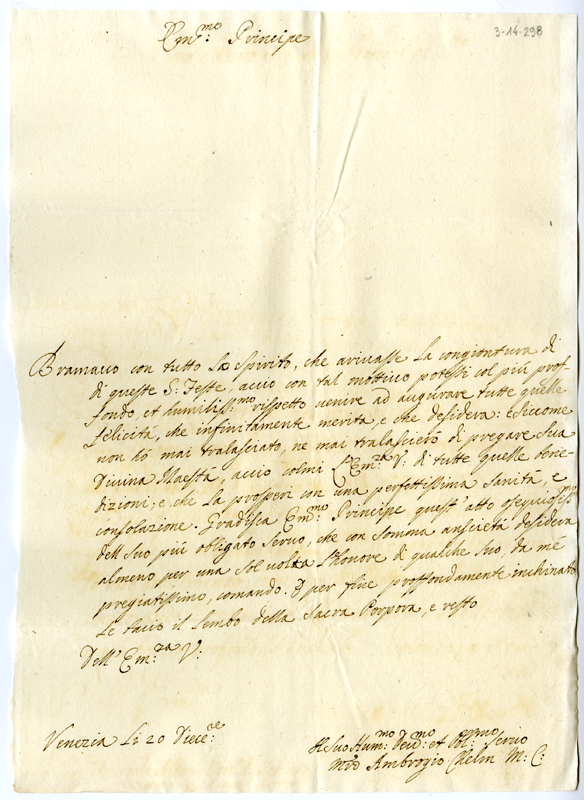 3-14-298
Em:mo Principe
Bramavo con tutto Lo Spirito, che arivasse La congiontura di
di queste S: Feste, acciò con tal mottivo potessi col più prof-
fondo, et humiliss:mo rispetto venire ad augurare tutte quelle
felicità, che infinitamente merita, e che desidera: e Siccome
non hò mai tralasciato, ne mai tralascierò di pregare Sua
Divina Maestà, acciò colmi L'Em:za V: di tutte quelle bene-
dizioni, e che La prosperi con una perfettissima Sanità, e
consolazione. Gradisca Em:mo Principe quest'atto osequiosiss:mo
dell Suo più obligato Servo, che con Somma ansietà desidera
almeno per una Sol volta L'honore di qualche Suo, da mè
pregiatissimo, comando. E per fine proffondamente inchinato
Le bacio il Lembo della Sacra Porpora, e resto
Dell' Em:za V:
Venezia Li 20 Diece:
Il Suo Hum:mo Dev:mo et Obl: Servo
Ambrogio M: C: